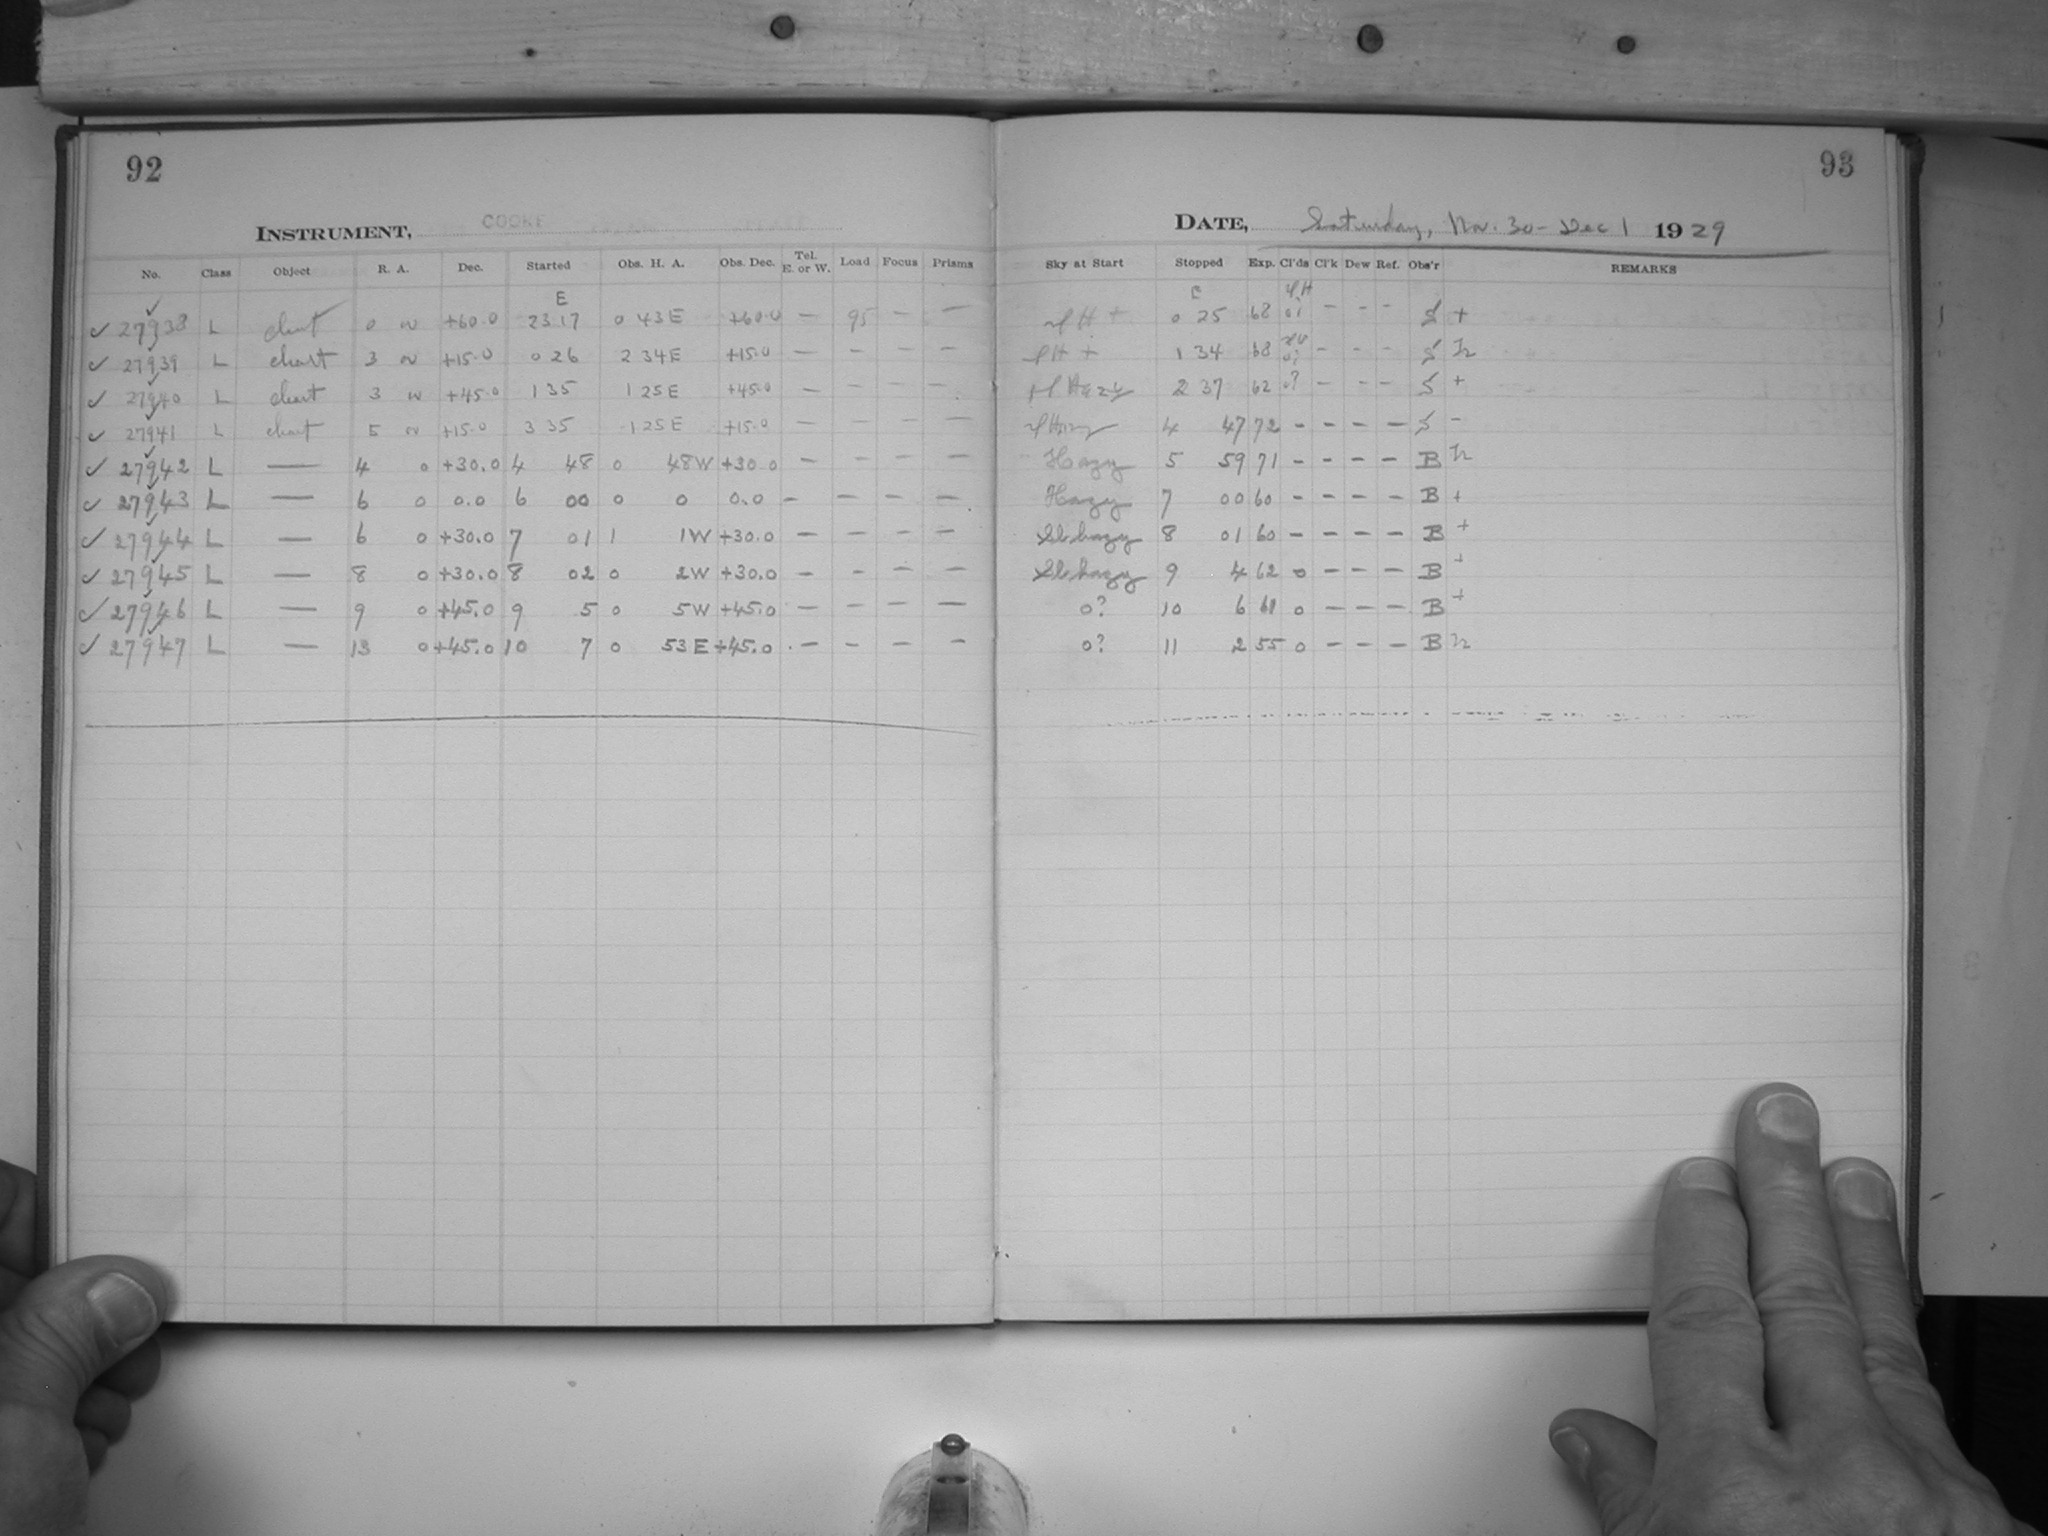 92
INSTRUMENT, COOKE
No. Class Object R. A. Dec. Started Obs. H. A. Obs. Dec. Tel. E. or W. Load Focus Prisms
E
✓ 27938 L chart 0 +60.0 23 17 0 43 E +60.0 — 95 — —
✓ 27939 L chart 3 +15.0 0 26 2 34 E +15.0 — — — —
✓ 27940 L chart 3 +45.0 1 35 1 25 E +45.0 — — — —
✓ 27941 L chart 5 +15.0 3 35 1 25 E +15.0 — — — —
✓ 27942 L — 4 0 +30.0 4 48 0 48 W +30.0 — — — —
✓ 27943 L — 6 0 0.0 6 00 0 0 0.0 — — — —
✓ 27944 L — 6 0 +30.0 7 01 1 1 W +30.0 — — — —
✓ 27945 L — 8 0 +30.0 8 02 0 2 W +30.0 — — — —
✓ 27946 L — 9 0 +45.0 9 5 0 5 W +45.0 — — — —
✓ 27947 L — 13 0 +45.0 10 7 0 53 E +45.0 — — — —
93
DATE, Saturday, Nov. 30 - Dec 1 1929
Sky at Start Stopped Exp. Cl'ds Cl'k Dew Ref. Obs'r REMARKS
0 25 68 — — — S +
1 34 68 — — — S
Hazy 2 37 62 0? — — — S +
4 47 72 — — — — S —
Hazy 5 59 71 — — — — B
Hazy 7 00 60 — — — — B +
Sl. hazy 8 01 60 — — — — B +
Sl. hazy 9 4 62 0 — — — B +
0? 10 6 61 0 — — — B +
0? 11 2 55 0 — — — B